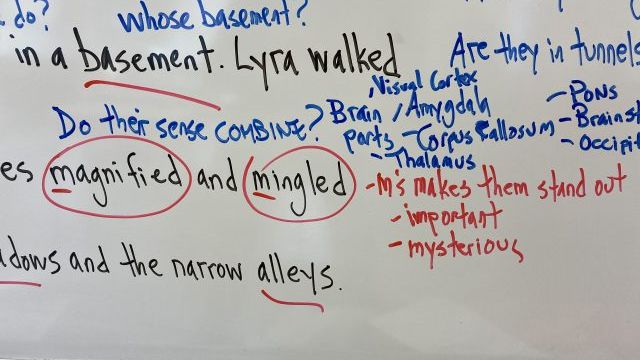 do?
whose basement?
in a basement. Lyra walked
Are they in tunnels
Visual Cortex
Do their sense COMBINE?
Brain parts
Amygdala
- Corpus Callosum
- Thalamus
- Pons
- Brainst
- Occipit
es magnified and mingled
- M's makes them stand out
- important
- mysterious
dows and the narrow alleys.